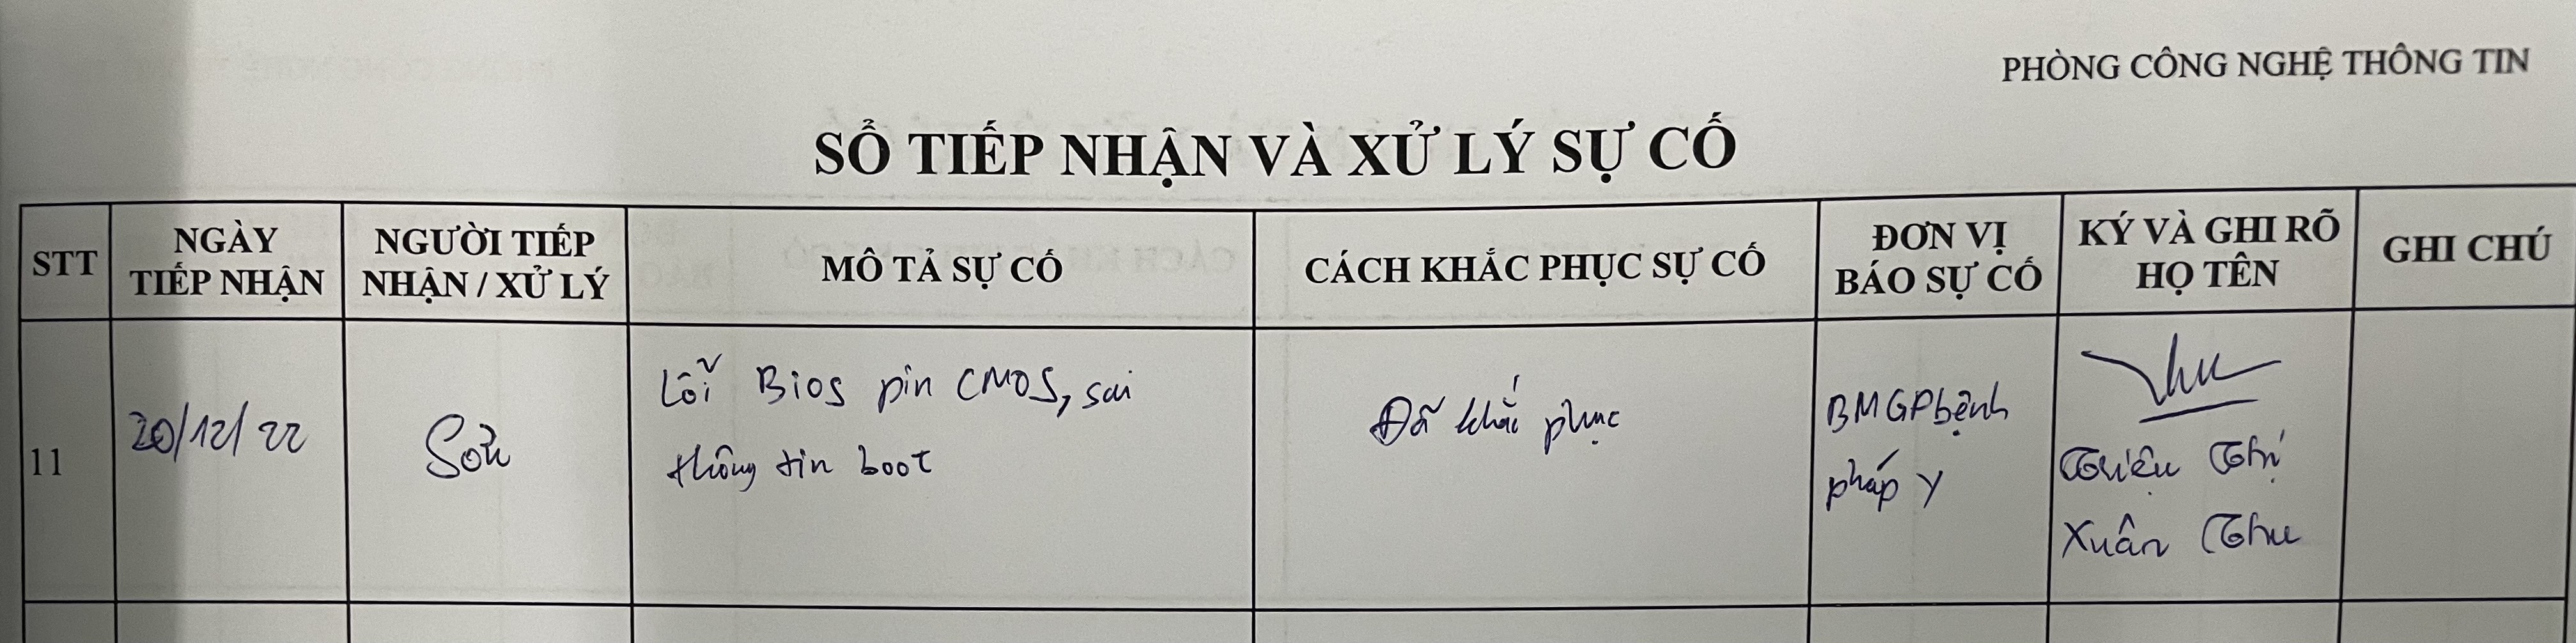 PHÒNG CÔNG NGHỆ THÔNG TIN
SỔ TIẾP NHẬN VÀ XỬ LÝ SỰ CỐ
STT
NGÀY
TIẾP NHẬN
NGƯỜI TIẾP
NHẬN / XỬ LÝ
MÔ TẢ SỰ CỐ
CÁCH KHẮC PHỤC SỰ CỐ
ĐƠN VỊ
BÁO SỰ CỐ
KÝ VÀ GHI RÕ
HỌ TÊN
GHI CHÚ
11
20/12/22
Sơn
Lỗi Bios pin CMOS, sai
thông tin boot
Đã khắc phục
BMGPbệnh
pháp y
Thu
Triệu Thị
Xuân Thu